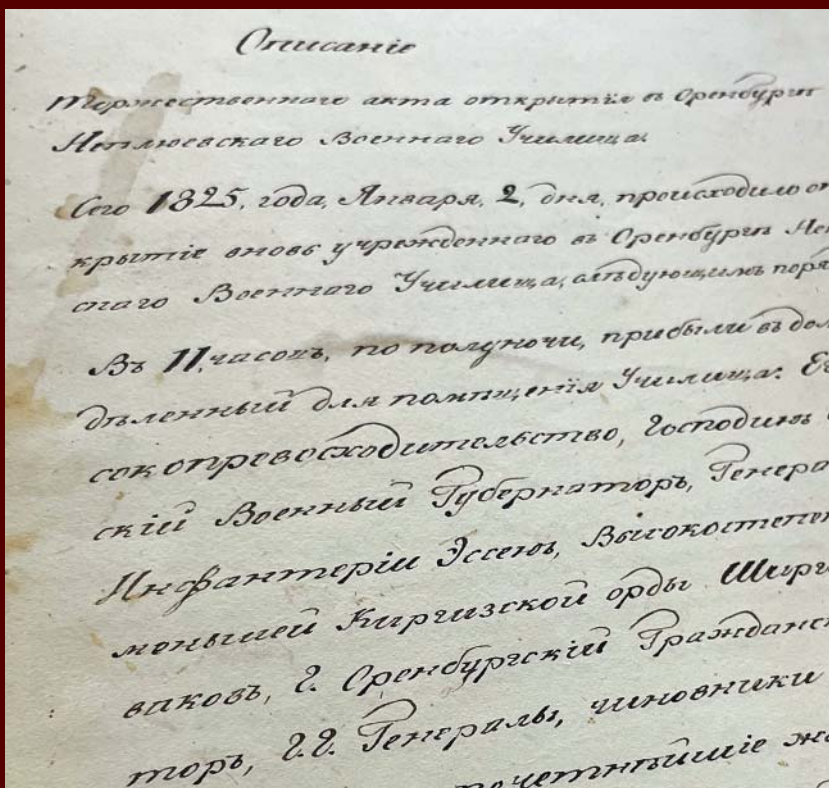 Описаніе
торжественнаго акта открытія въ Оренбургѣ
Неплюевскаго Военнаго Училища.
Сего 1825, года, Января, 2, дня, происходило от
крытіе вновь учрежденнаго въ Оренбургѣ Неп
скаго Военнаго Училища, слѣдующимъ поря
Въ 11, часовъ, по полуночи, прибыли въ дом
дѣленный для помѣщенія Училища: Ег
сокопревосходительство, Господинъ
скій Военный Губернаторъ, Генера
Инфантеріи Эссенъ, Высокостепен
меньшей Киргизской орды Ширг
ваковъ, Г. Оренбургскій Гражданс
торъ, Г.Г. Генералы, чиновники
почетнѣйшіе жи